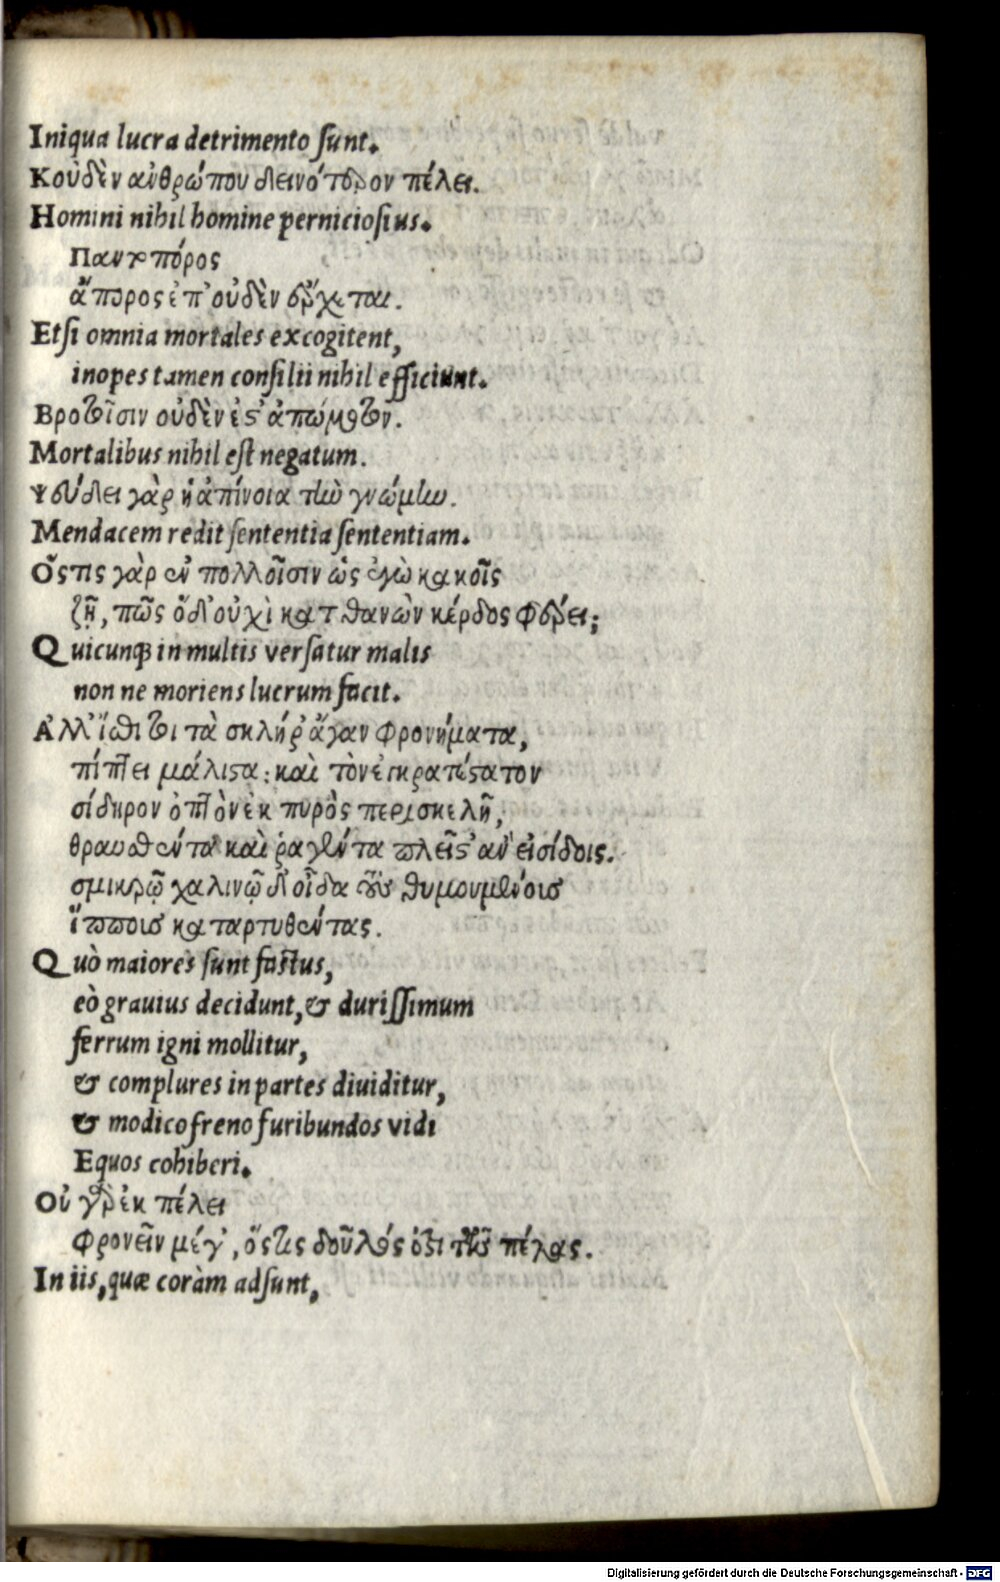 Iniqua lucra detrimento ſunt.
Κοὐδὲν ἀνθρώπου δεινότερον πέλει.
Homini nihil homine pernicioſius.
Παντοπόρος
ἄπορος ἐπ' οὐδὲν ἔρχεται.
Etſi omnia mortales excogitent,
inopes tamen conſilii nihil efficiunt.
Βροτοῖσιν οὐδὲν ἐς' ἀπώμοτον.
Mortalibus nihil eſt negatum.
Ψεύδει γὰρ ἡ ἀπίνοια τὴν γνώμην.
Mendacem redit ſententia ſententiam.
Ὅςτις γὰρ ἐν πολλοῖσιν ὡς ἐγὼ κακοῖς
ζῇ, πῶς ὅδ' οὐχὶ κατθανὼν κέρδος φέρει;
Quicunq; in multis verſatur malis
non ne moriens lucrum facit.
Ἀλλ' ἴσθι τοι τὰ σκλήρ' ἄγαν φρονήματα,
πίπτει μάλιςα: καὶ τὸν ἐγκρατέςατον
σίδηρον ὀπτὸν ἐκ πυρὸς περισκελῆ,
θραυσθέντα καὶ ῥαγέντα πλεῖς' ἂν εἰσίδοις.
σμικρῷ χαλινῷ δ' οἶδα τοὺς θυμουμένους
ἵππους καταρτυθέντας.
Quò maiores ſunt faſtus,
eò grauius decidunt, & duriſſimum
ferrum igni mollitur,
& complures in partes diuiditur,
& modico freno furibundos vidi
Equos cohiberi.
Οὐ γὰρ ἐκ πέλει
Φρονεῖν μέγ', ὅςτις δοῦλός ὅτι τῶν πέλας.
In iis, quæ coràm adſunt,
Digitalisierung gefördert durch die Deutsche Forschungsgemeinschaft - DFG